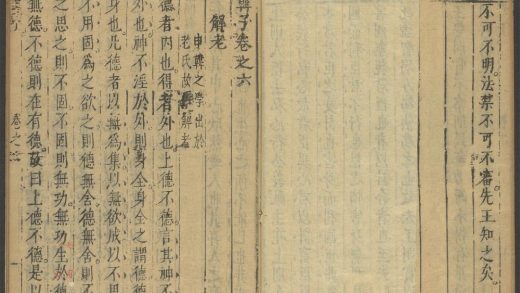 不可不明法禁不可不審先王知之矣
子卷之六
解老
申韓之學出於
老氏故解者
德者内也得者外也上德不德言其神不
外也神不淫於外則身全身全之謂德德
身也凡德者以無爲集以無欲成以不思
不用固爲之欲之則德無舍德無舍則不
之思之則不固不固則無功無功生於德
無德不德則在有德故曰上德不德是以
卷之六
一